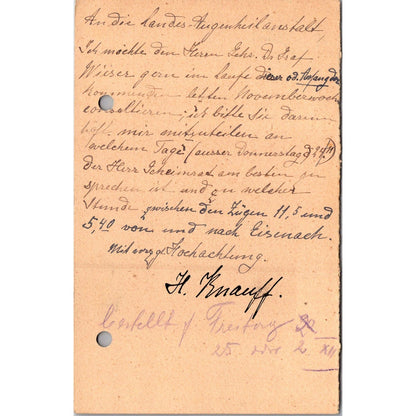 An die Landes-Augenheilanstalt,
Ich möchte den Herrn Geh. Dr Graf
Wieser gern im Laufe dieser od. Anfang der
kommenden letzten Novemberwoche
consultieren; ich bitte Sie darum
höfl. mir mitzuteilen an
welchem Tage (ausser Donnerstag d.
der Herr Geheimrat am besten zu
sprechen ist und zu welcher
Stunde zwischen den Zügen 11,5 und
5,40 von und nach Eisenach.
Mit vorzgl. Hochachtung.
H. Knauff.
bestellt f. Freitag
25. oder 2. XII